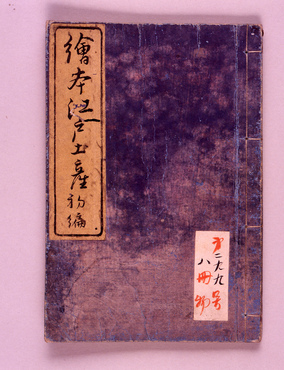 繪本江戸土産初編
第二六九号
八冊物